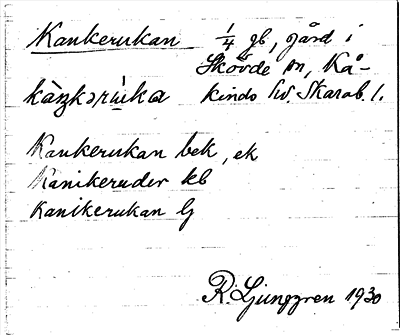 Kankerukan 1/4 gb, gård i
Skövde sn, Kå-
kàŋkərùka kinds hd. Skarab. l.
Kankerukan bek, ek
Kanikeruder kb
Kanikerukan lj
R. Ljunggren 1930